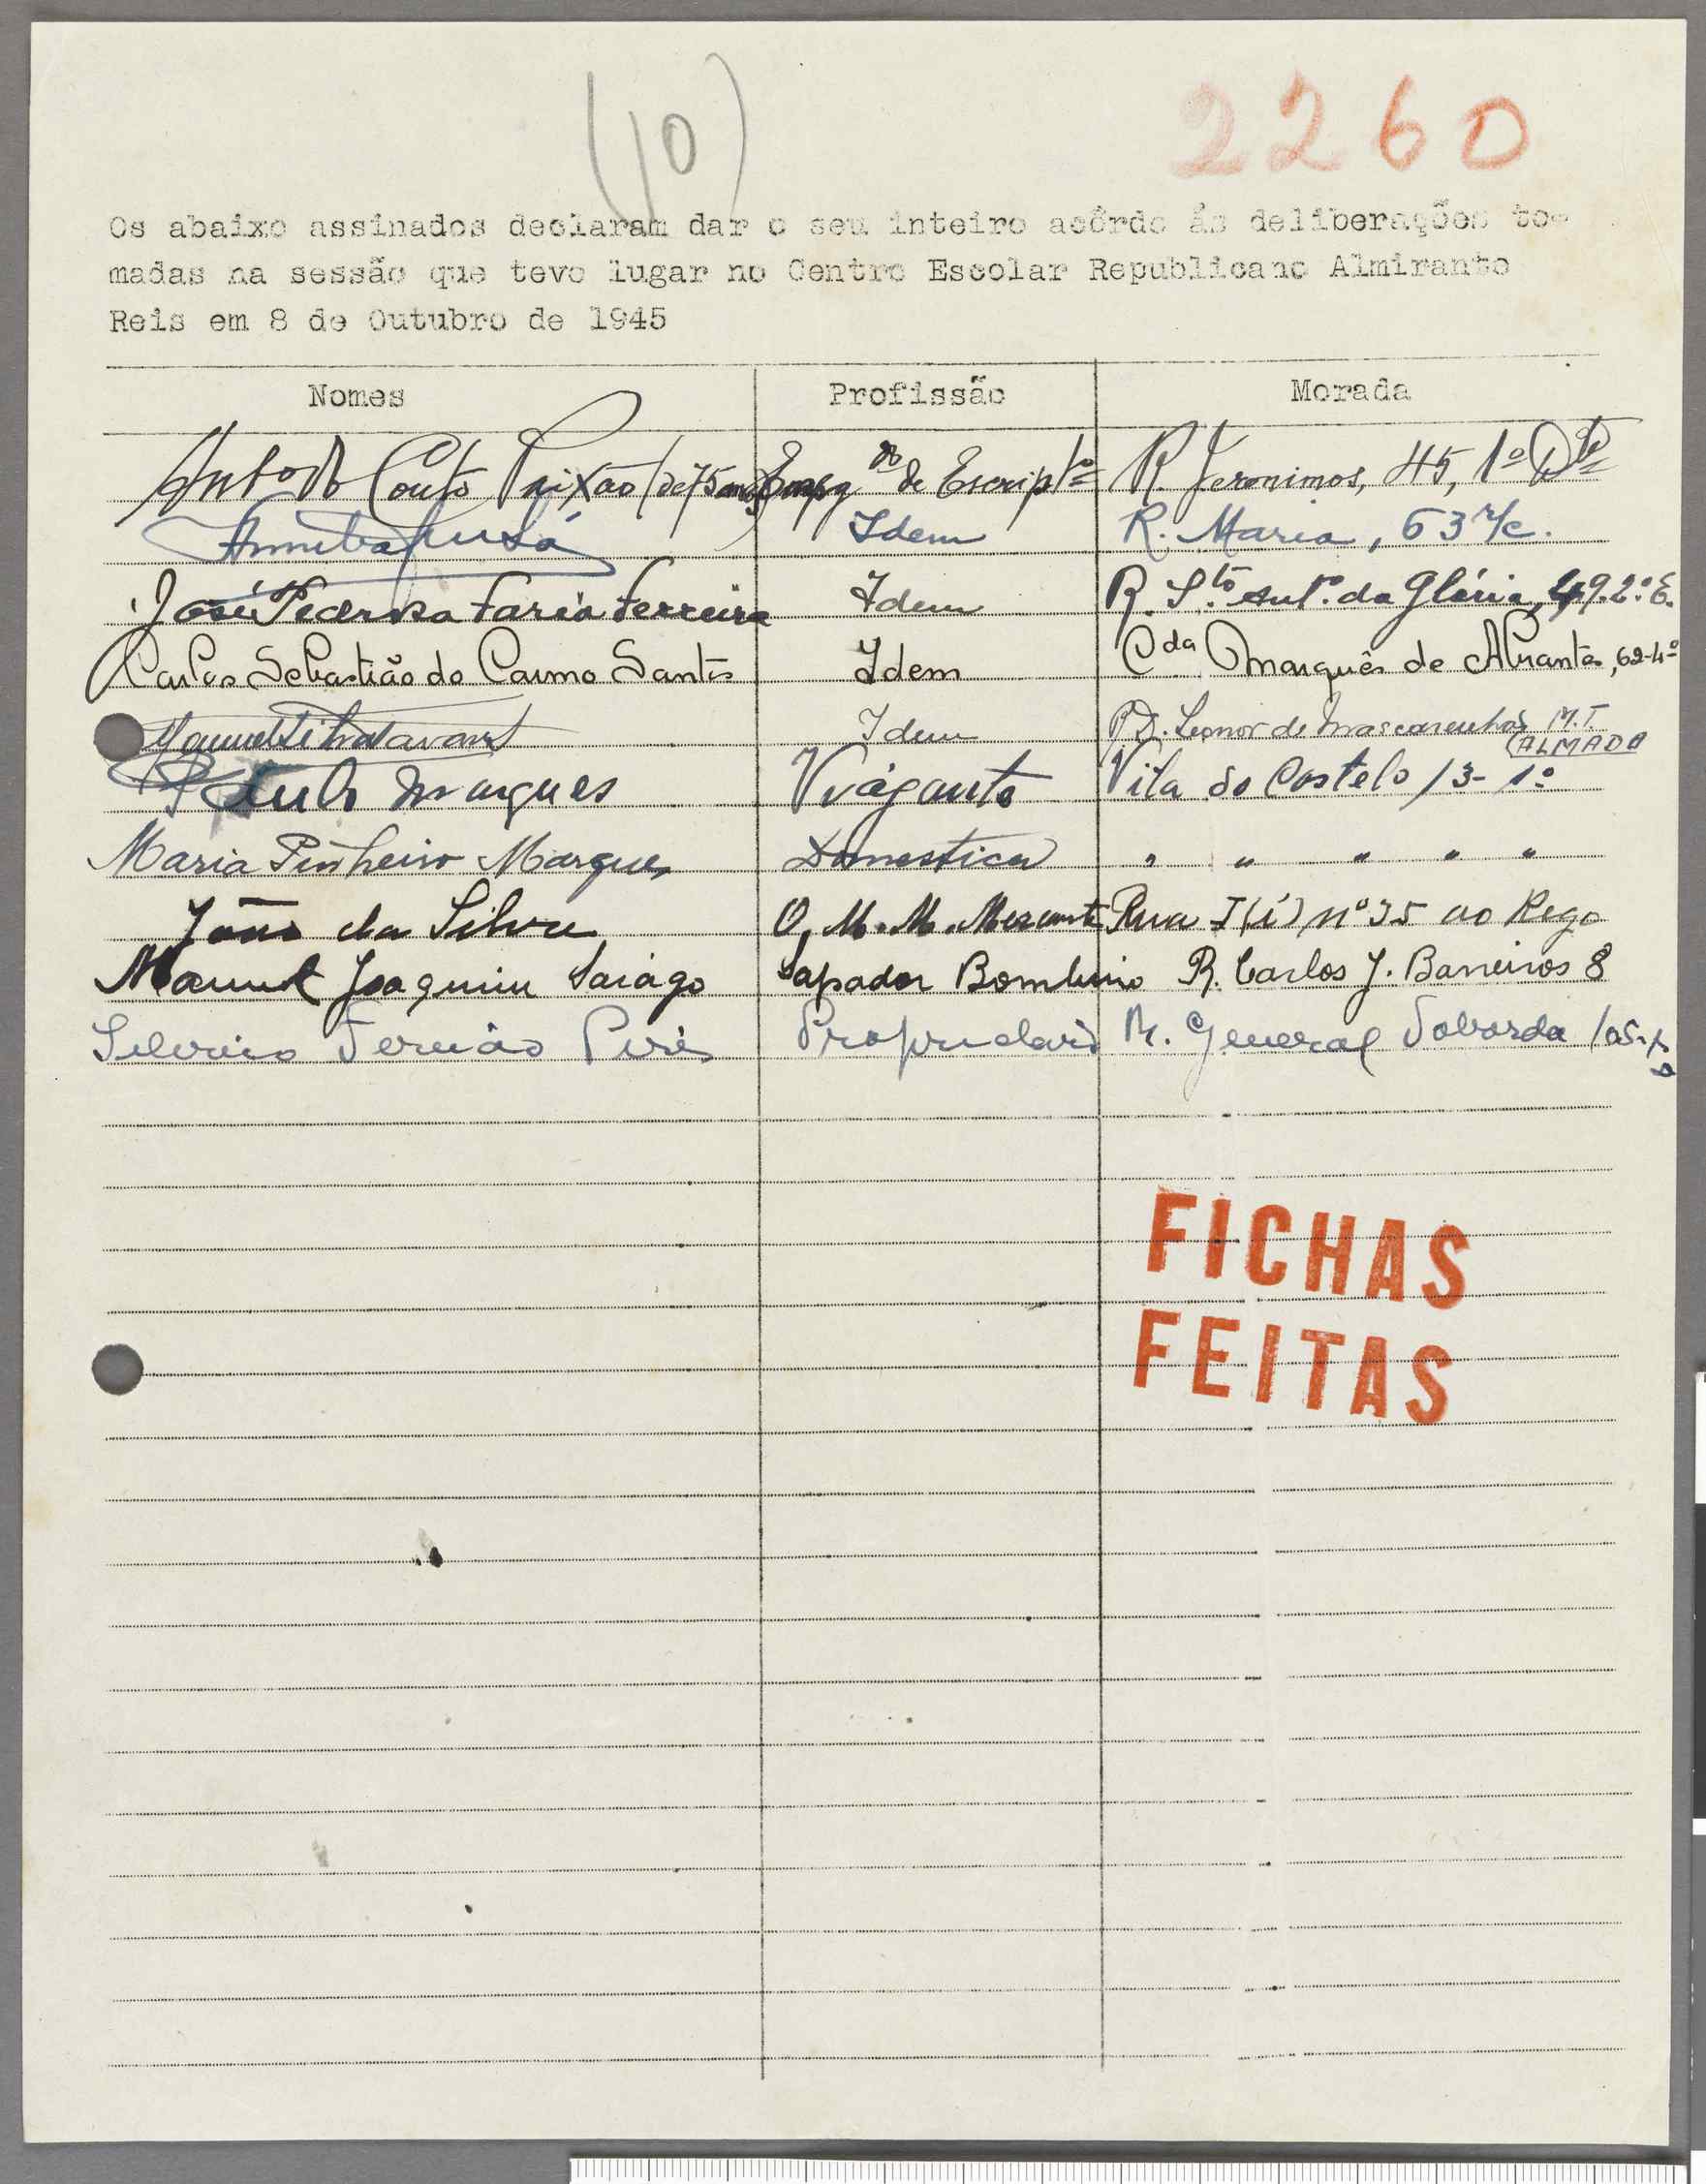 (10)
2260
Os abaixo assinados declaram dar o seu inteiro acôrdo ás deliberações to-
madas na sessão que teve lugar no Centro Escolar Republicano Almirante
Reis em 8 de Outubro de 1945
Nomes Profissão Morada
Couto Paixão (de 75 anos) Empgdo de Escriptº R. Jeronimos, 45, 1º Dtº
Idem R. Maria, 63 r/c.
José Pedroso Faria Ferreira Idem R. Sto Antº. da Glória, 49. 2º. E.
Carlos Sebastião do Carmo Santos Idem Cda Marquês de Abrantes, 62-4º
Manuel Silva Tavares Idem R D. Leonor de Mascarenhas M.T.
(ALMADA
Marques Viajante Vila do Castelo 13-1º
Maria Pinheiro Marques Domestica " " " " "
João da Silva O. M. M. Mercante Rua I (i) nº 35 ao Rego
Manuel Joaquim Saiago Sapador Bombeiro R. Carlos J. Barreiros 8
Silverio Fernão Pires Proprietario R. General Taborda
FICHAS
FEITAS